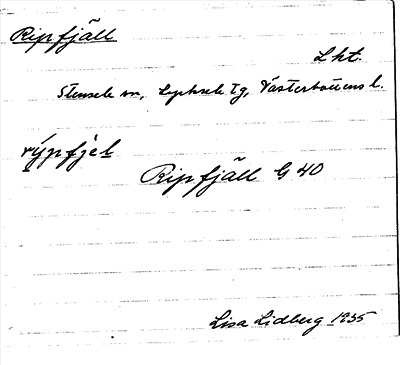 Ripfjäll
Lkt.
Stensele sn, Lycksele tg, Västerbottens l.
rýpfjel
Ripfjäll G 40
Lisa Lidberg 1935